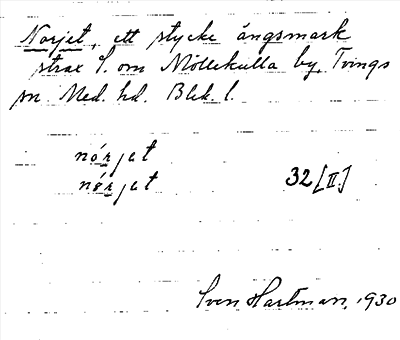 Norjet, ett stycke ängsmark
strax S. om Möllekulla by, Tvings
sn Med. hd. Blek. l.
nórjet
nórjet
32 [II]
Sven Hartman, 1930